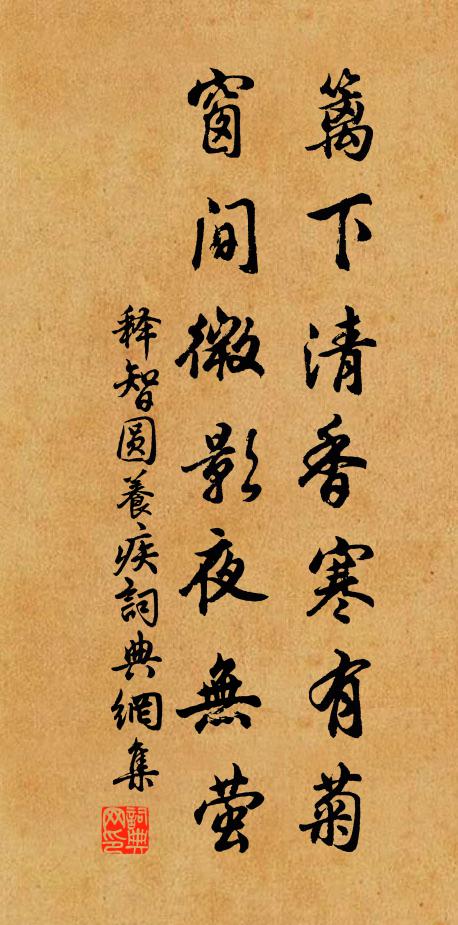 籬下清香寒有菊
窗間微影夜無螢
释智圆養疾詞典網集
詞典网印